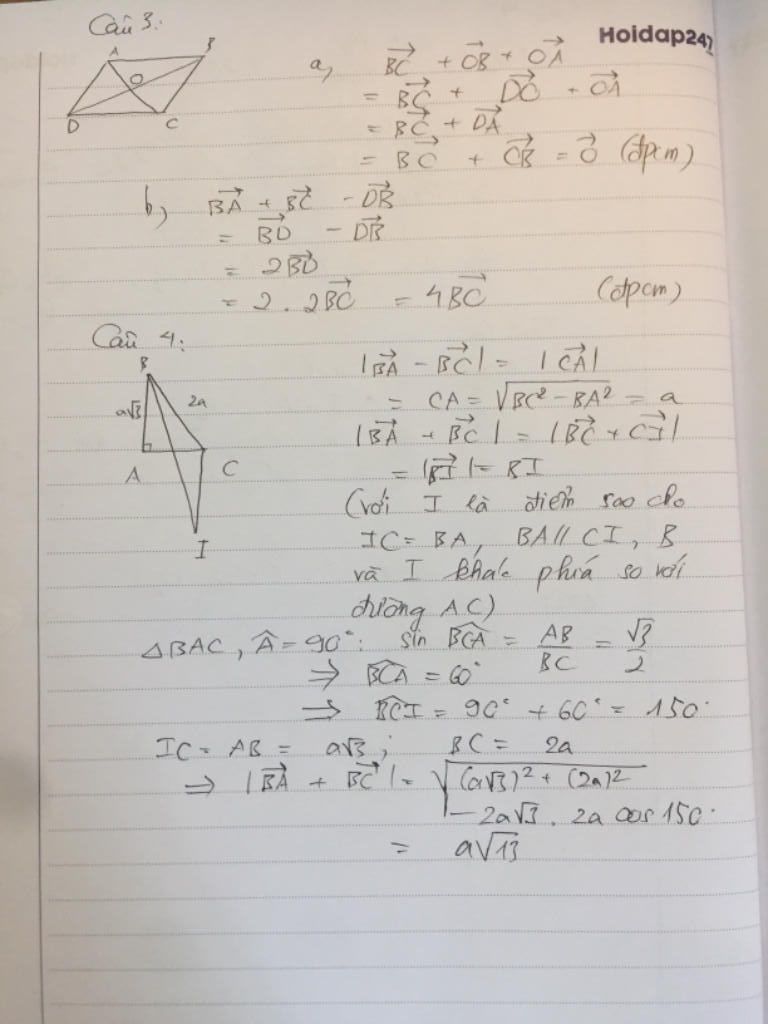 Câu 3:
Hoidap247
A B
O
D C
a, BC→ + OB→ + OA→
= BC→ + DO→ + OA→
= BC→ + DA→
= BC→ + CB→ = O→ (đpcm)
b, BA→ + BC→ - DB→
= BD→ - DB→
= 2BD→
= 2 . 2BC→ = 4BC→ (đpcm)
Câu 4:
B
a√3 2a
A C
I
|BA→ - BC→| = |CA→|
= CA = √(BC² - BA²) = a
|BA→ + BC→| = |BC→ + CI→|
= |BI→| = BI
(với I là điểm sao cho
IC = BA, BA // CI, B
và I khác phía so với
đường AC)
△BAC, Â = 90°: sin BCA^ = AB/BC = √3/2
⇒ BCA^ = 60°
⇒ BCI^ = 90° + 60° = 150°
IC = AB = a√3; BC = 2a
⇒ |BA→ + BC→| = √((a√3)² + (2a)²
- 2a√3 . 2a cos 150°
= a√13